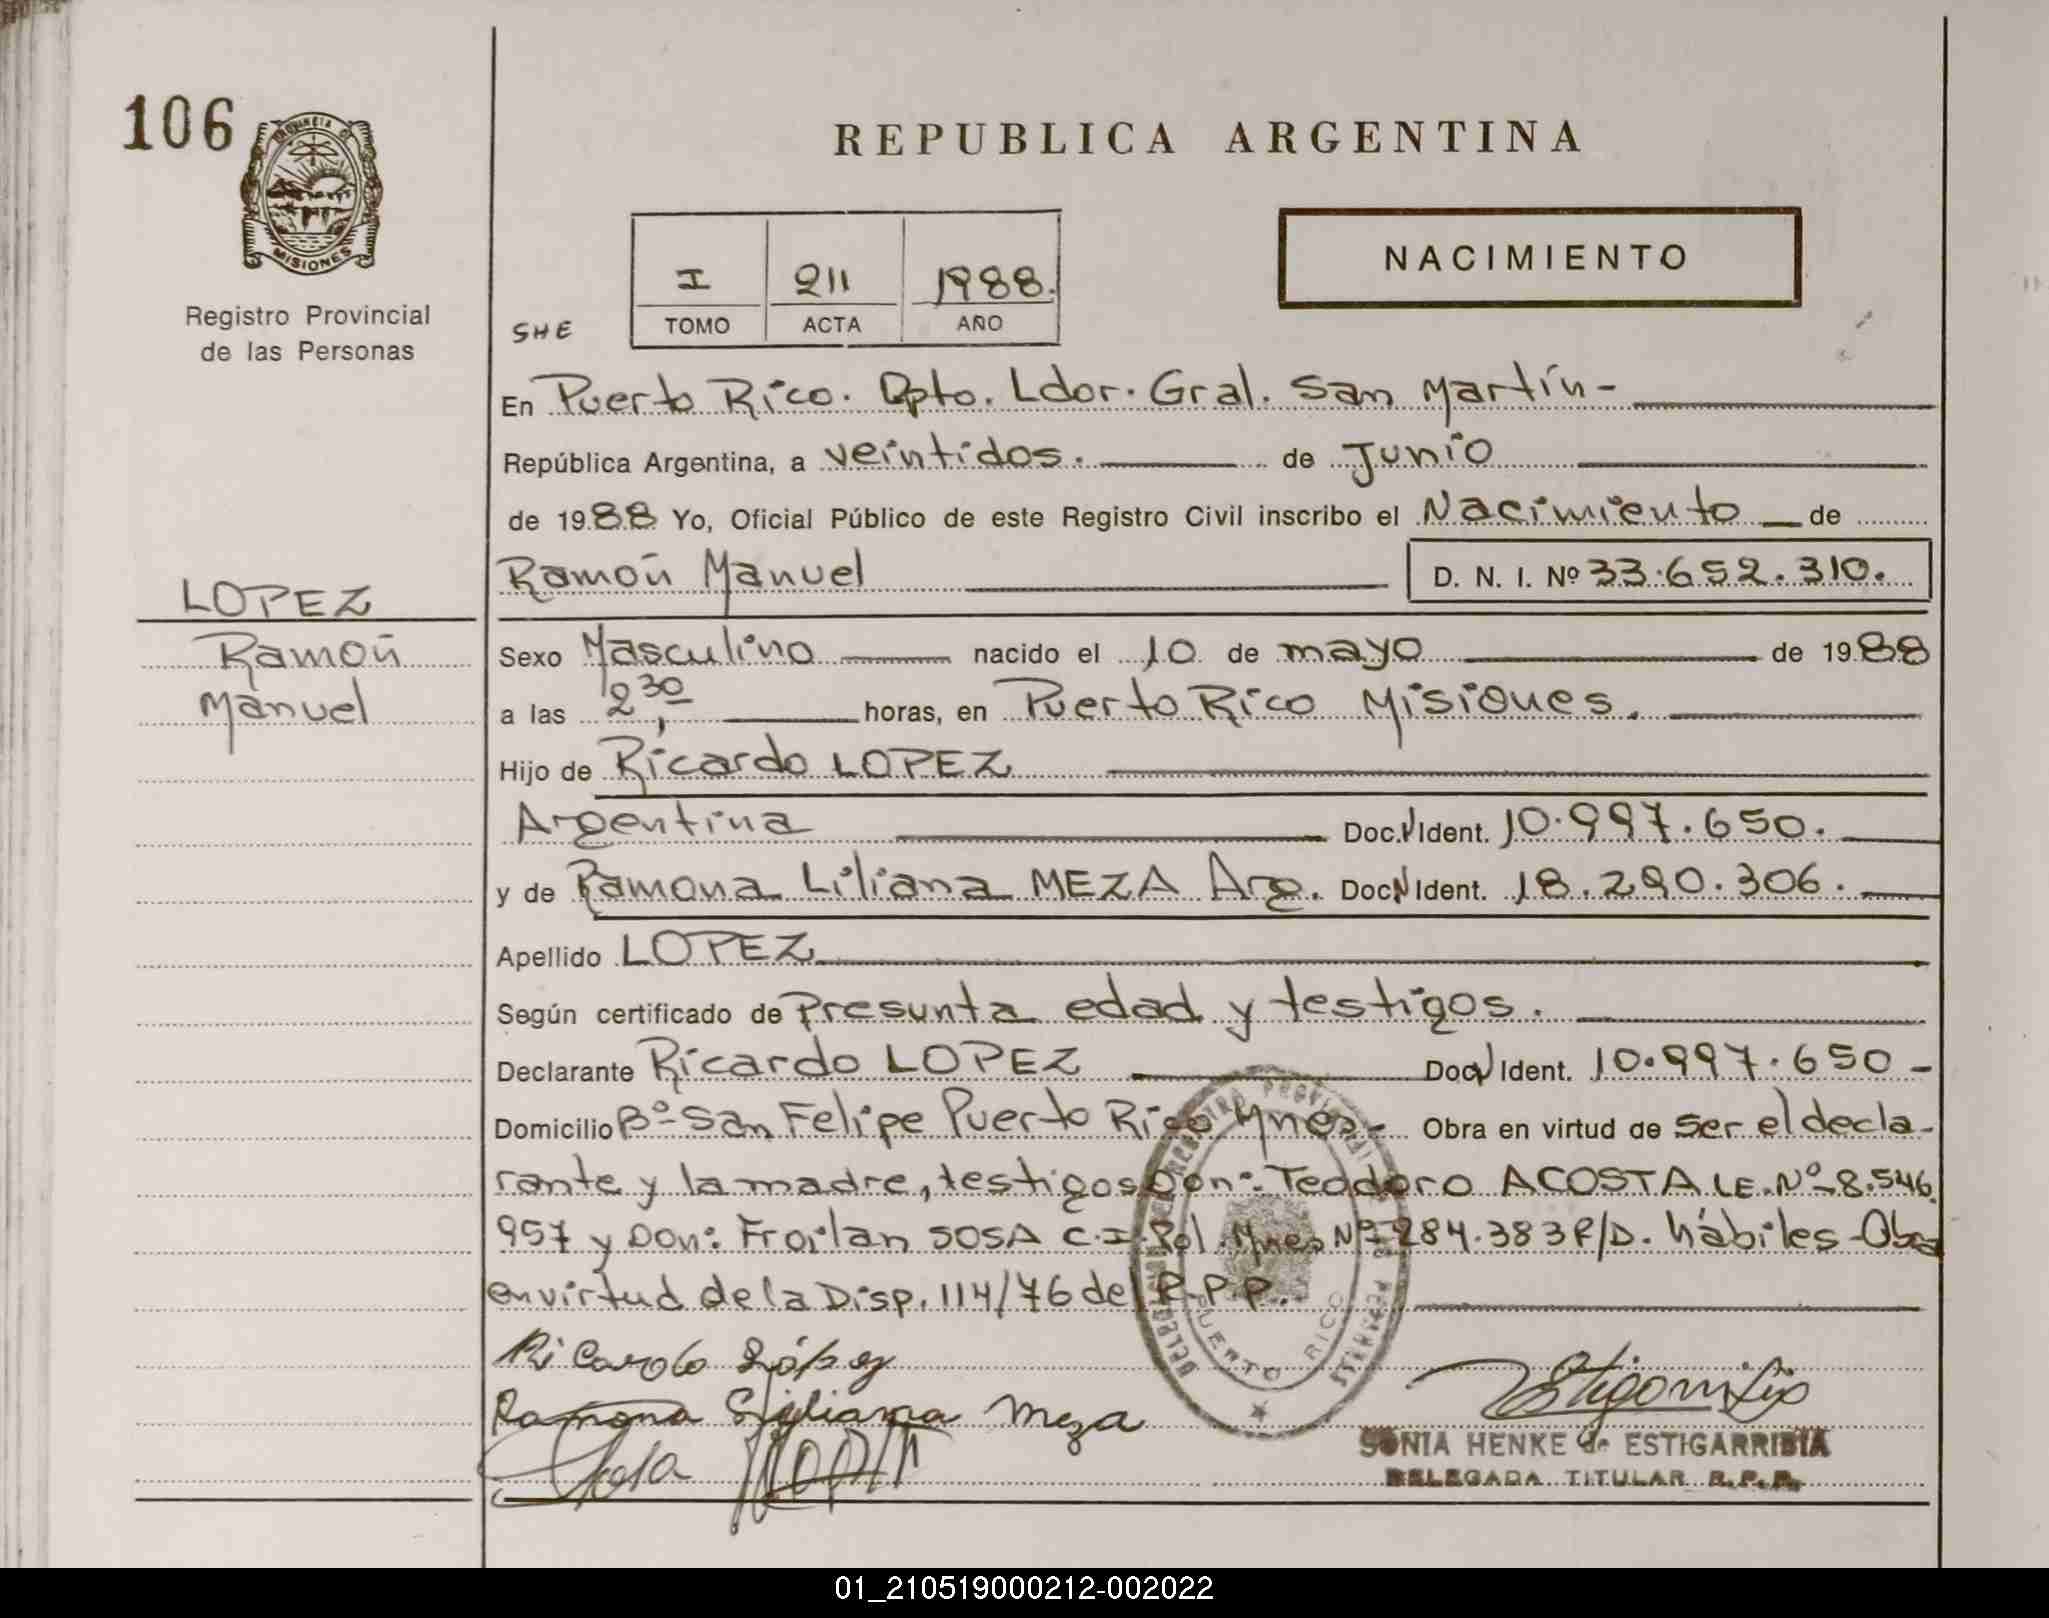 106
PROVINCIA DE
MISIONES
Registro Provincial
de las Personas
REPUBLICA ARGENTINA
NACIMIENTO
I 211 1988.
TOMO ACTA AÑO
SHE
En Puerto Rico. Dpto. Ldor. Gral. San Martín-
República Argentina, a veintidos. de Junio
de 1988 Yo, Oficial Público de este Registro Civil inscribo el Nacimiento de
Ramón Manuel D. N. I. Nº 33.652.310.
LOPEZ
Ramón
Manuel
Sexo Masculino nacido el 10 de mayo de 1988
a las 2,30 horas, en Puerto Rico Misiones.
Hijo de Ricardo LOPEZ
Argentina Doc. N Ident. 10.997.650.
y de Ramona Liliana MEZA Arg. Doc N Ident. 18.290.306.
Apellido LOPEZ
Según certificado de Presunta edad y testigos.
Declarante Ricardo LOPEZ Doc N Ident. 10.997.650-
Domicilio Bº San Felipe Puerto Rico Mnes- Obra en virtud de ser el decla-
rante y la madre, testigos Don: Teodoro ACOSTA LE. Nº 8.546.
957 y Don: Froilan SOSA C.I. Pol. Mnes Nº 284.383 R/D. hábiles-Obra
en virtud de la Disp. 114/76 del R.P.P.
PUERTO RICO
Ricardo López
Ramona Liliana Meza
Sosa
SONIA HENKE de ESTIGARRIBIA
DELEGADA TITULAR R.P.P.
01_210519000212-002022